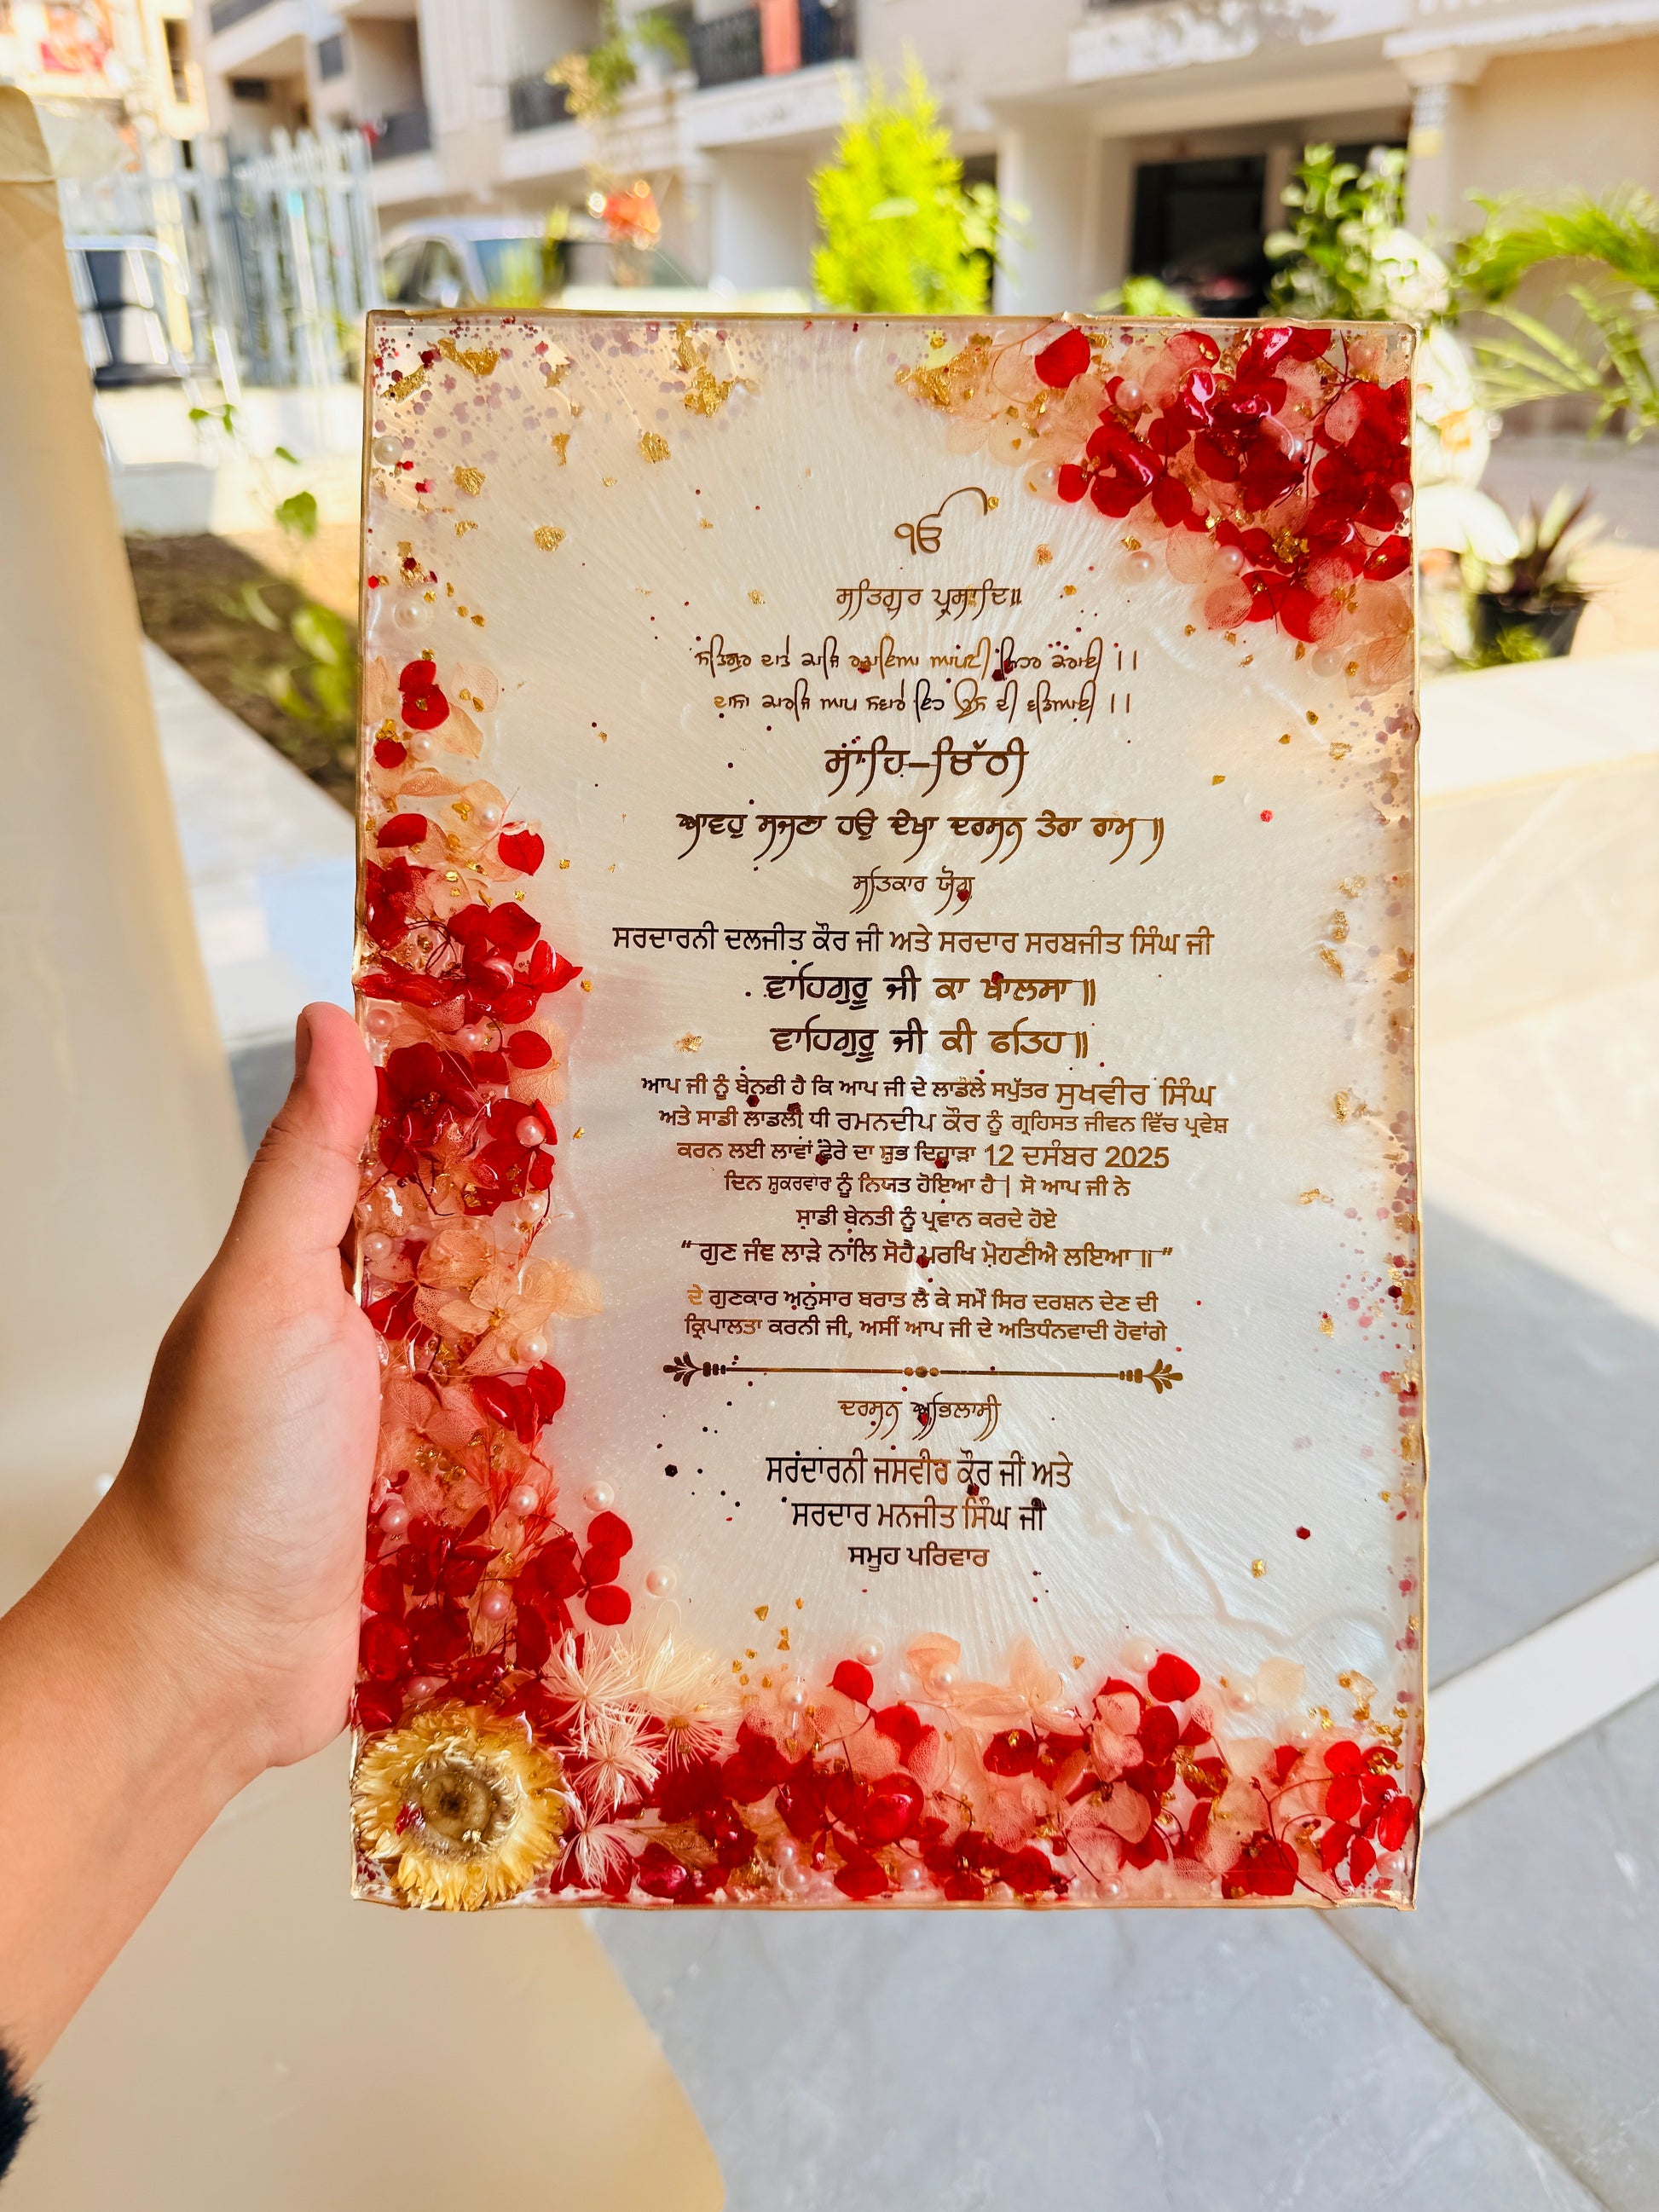 ੴ
ਸਤਿਗੁਰ ਪ੍ਰਸਾਦਿ॥
ਸਤਿਗੁਰ ਦਾਤੇ ਕਾਜਿ ਰਚਾਇਆ ਆਪਣੀ ਮਿਹਰ ਕਰਾਈ ।।
ਦਾਸਾ ਕਾਰਜਿ ਆਪ ਸਵਾਰੇ ਇਹ ਉਸ ਦੀ ਵਡਿਆਈ ।।
ਸਾਹਿ-ਚਿੱਠੀ
ਆਵਹੁ ਸਜਣਾ ਹਉ ਦੇਖਾ ਦਰਸਨ ਤੇਰਾ ਰਾਮ ॥
ਸਤਿਕਾਰ ਯੋਗ
ਸਰਦਾਰਨੀ ਦਲਜੀਤ ਕੌਰ ਜੀ ਅਤੇ ਸਰਦਾਰ ਸਰਬਜੀਤ ਸਿੰਘ ਜੀ
ਵਾਹਿਗੁਰੂ ਜੀ ਕਾ ਖਾਲਸਾ॥
ਵਾਹਿਗੁਰੂ ਜੀ ਕੀ ਫਤਿਹ॥
ਆਪ ਜੀ ਨੂੰ ਬੇਨਤੀ ਹੈ ਕਿ ਆਪ ਜੀ ਦੇ ਲਾਡਲੇ ਸਪੁੱਤਰ ਸੁਖਵੀਰ ਸਿੰਘ
ਅਤੇ ਸਾਡੀ ਲਾਡਲੀ ਧੀ ਰਮਨਦੀਪ ਕੌਰ ਨੂੰ ਗ੍ਰਹਿਸਤ ਜੀਵਨ ਵਿੱਚ ਪ੍ਰਵੇਸ਼
ਕਰਨ ਲਈ ਲਾਵਾਂ ਫੇਰੇ ਦਾ ਸ਼ੁਭ ਦਿਹਾੜਾ 12 ਦਸੰਬਰ 2025
ਦਿਨ ਸ਼ੁਕਰਵਾਰ ਨੂੰ ਨਿਯਤ ਹੋਇਆ ਹੈ | ਸੋ ਆਪ ਜੀ ਨੇ
ਸਾਡੀ ਬੇਨਤੀ ਨੂੰ ਪ੍ਰਵਾਨ ਕਰਦੇ ਹੋਏ
“ ਗੁਣ ਜੰਞ ਲਾੜੇ ਨਾਲਿ ਸੋਹੈ ਪਰਖਿ ਮੋਹਣੀਐ ਲਇਆ ॥ ”
ਦੇ ਗੁਣਕਾਰ ਅਨੁਸਾਰ ਬਰਾਤ ਲੈ ਕੇ ਸਮੇਂ ਸਿਰ ਦਰਸ਼ਨ ਦੇਣ ਦੀ
ਕ੍ਰਿਪਾਲਤਾ ਕਰਨੀ ਜੀ, ਅਸੀਂ ਆਪ ਜੀ ਦੇ ਅਤਿਧੰਨਵਾਦੀ ਹੋਵਾਂਗੇ
ਦਰਸ਼ਨ ਅਭਿਲਾਸੀ
ਸਰਦਾਰਨੀ ਜਸਵੀਰ ਕੌਰ ਜੀ ਅਤੇ
ਸਰਦਾਰ ਮਨਜੀਤ ਸਿੰਘ ਜੀ
ਸਮੂਹ ਪਰਿਵਾਰ